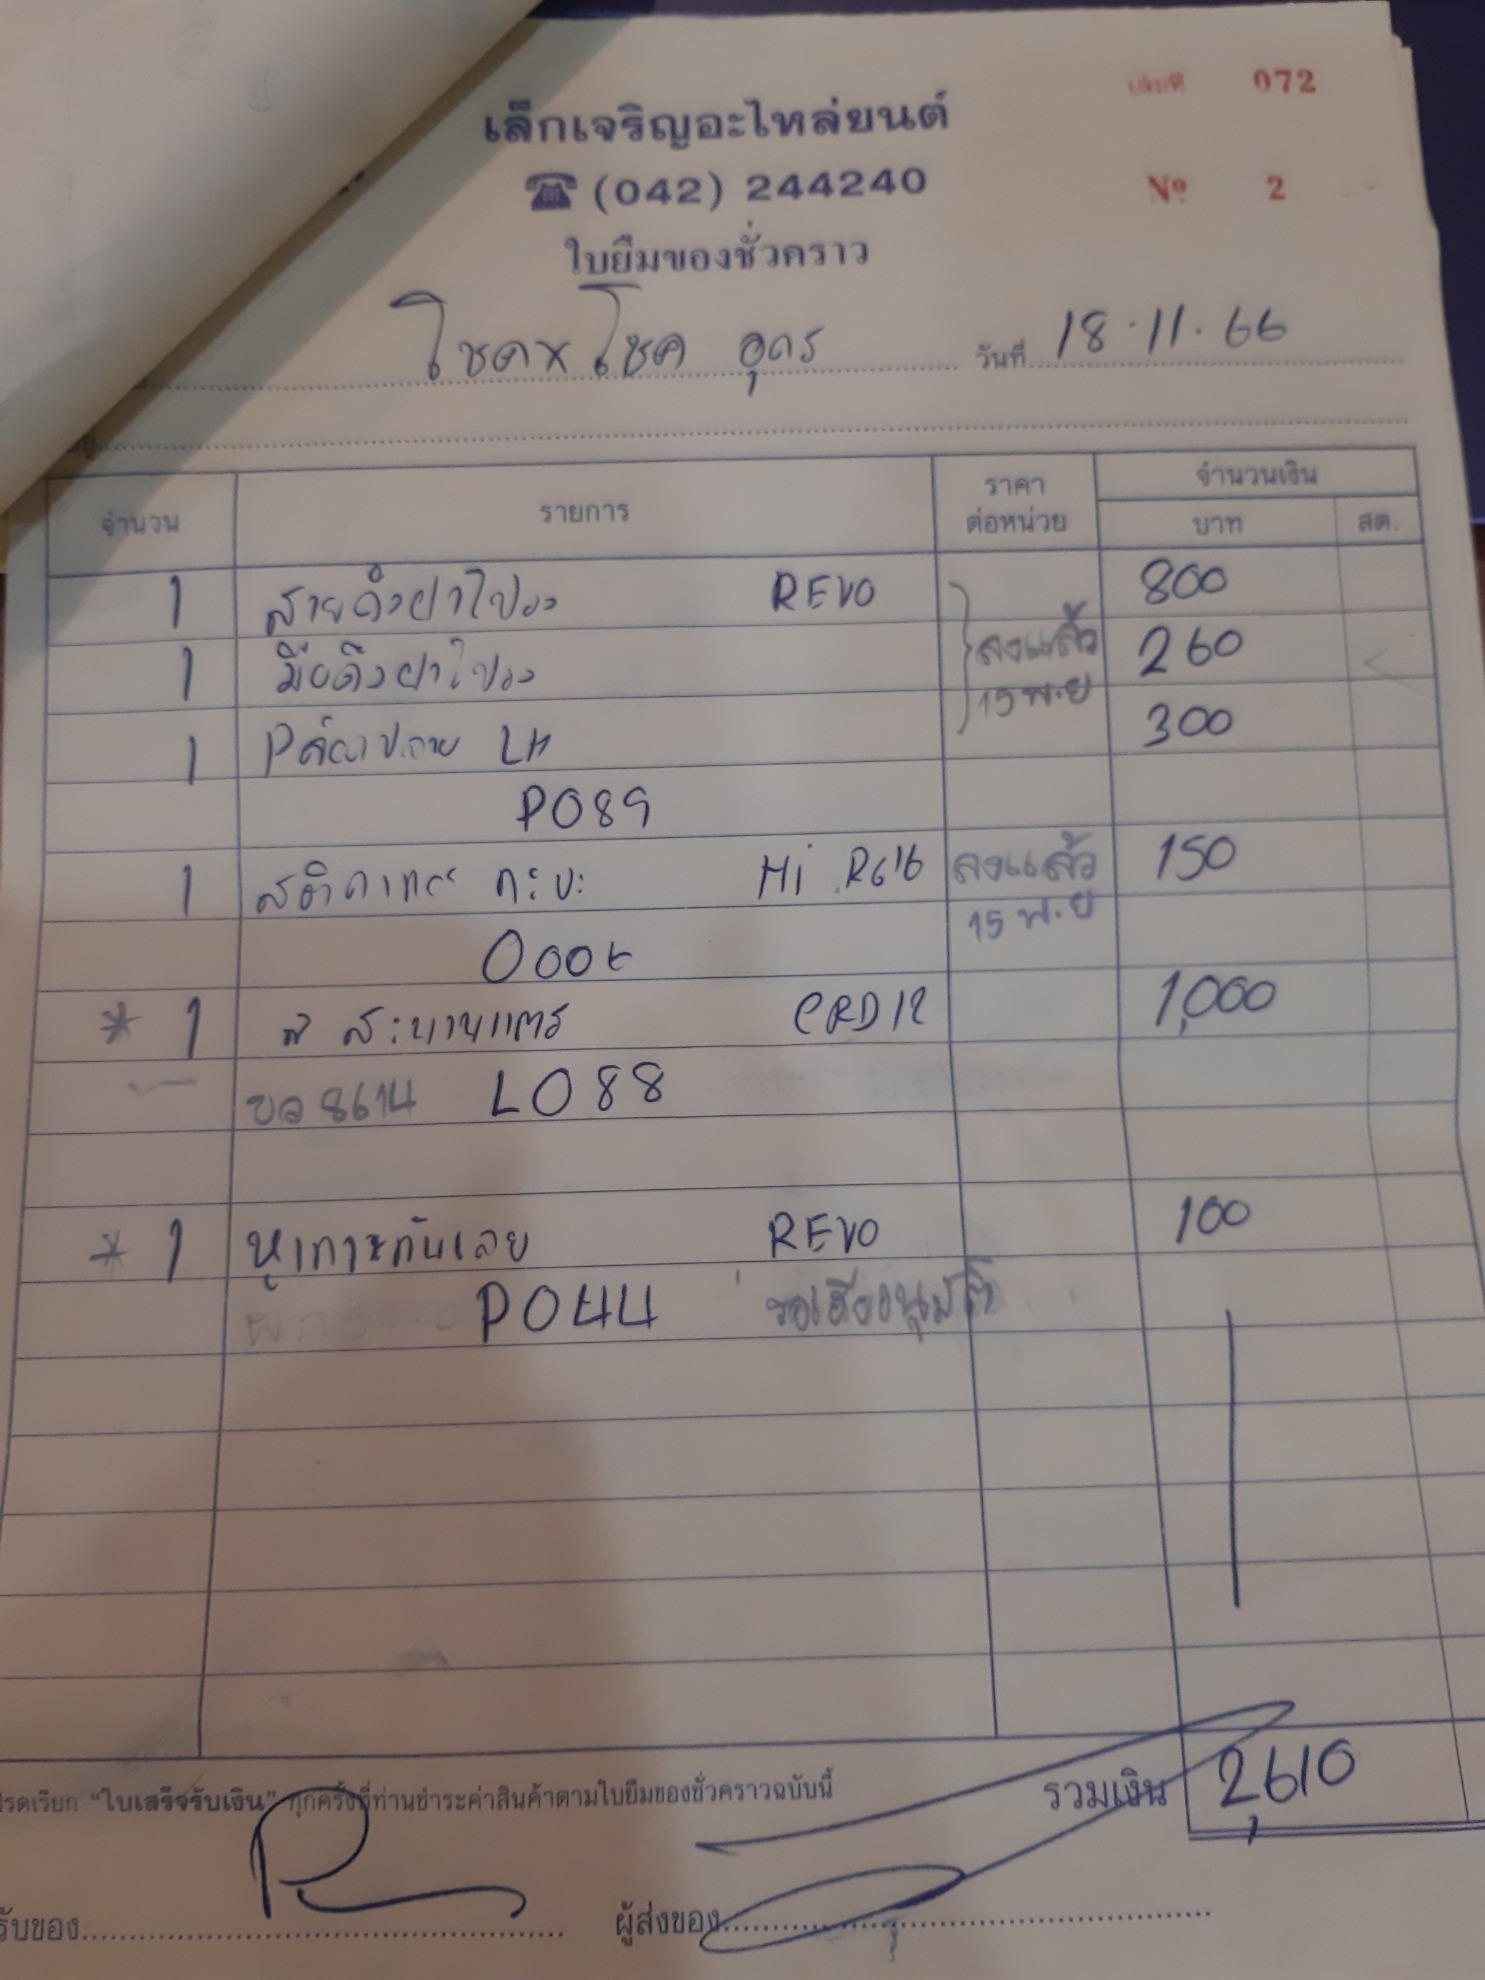 เล่มที่ 072
เล็กเจริญอะไหล่ยนต์
☎ (042) 244240
Nº 2
ใบยืมของชั่วคราว
โชค x โชค อุดร วันที่ 18.11.66
จำนวน รายการ ราคาต่อหน่วย จำนวนเงิน
บาท สต.
1 สายดึงฝาโปรง REVO 800
1 มือดึงฝาโปรง ลงแล้ว 260
15 พ.ย
1 LH 300
P089
1 สติกเกอร์ กะบะ Hi ลงแล้ว 150
15 พ.ย
* 1 1,000
8614 L088
* 1 REVO 100
P044 รอเฮียอนุมัติ
รดเรียก "ใบเสร็จรับเงิน" ทุกครั้งที่ท่านชำระค่าสินค้าตามใบยืมของชั่วคราวฉบับนี้ รวมเงิน 2,610
รับของ ผู้ส่งของ